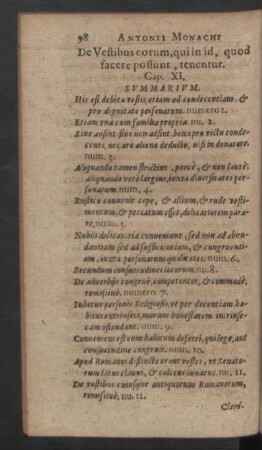 98 ANTONII MONACHI
De Vestibus eorum, qui in id, quod
facere possunt, tenentur.
Cap. XI,
SVMMARIVM.
His est debita vestis, etiam ad condecentiam, &
pro dignitate personarum. numero 1.
Etiam vna cum familia propria. nu. 2.
Siue adsint, siue non adsint, bona pro victu conde-
centi, nec ære alieno deducto, nisi in donatore.
num. 3.
Aliquando tamen strictim, parcè, & non lautè;
aliquando verò largius, iuxta diuersitates per-
sonarum. num. 4.
Rustico conuenit cepe, & allium, & rude vesti-
mentum, & peccatum esset, delicatiorem para-
re, num. 5.
Nobili delicatoria conueniunt, sed non ad abun-
dantiam sed ad sufficientiam, & congruenti-
am, iuxta personarum qualitates. num. 6.
Secundum consuetudines locorum. nu. 8.
De aduerbijs congruè, competenter, & commodè,
remissiuè. numero 7.
Iubetur personis Religiosis, vt per decentiam ha-
bitus extrinseci, morum honestatem intrinse-
cam ostendant. num. 9.
Conueniens est cum habitum deferri, qui lege, aut
consuetudine congruit. num. 10.
Apud Romanos distincto erant vestes, vt Senato-
rum latus clauus, & calceus lunatus. nu. 11.
De vestibus cuiusque antiquorum Romanorum,
remissiuè, nu. 12.
Cleri-